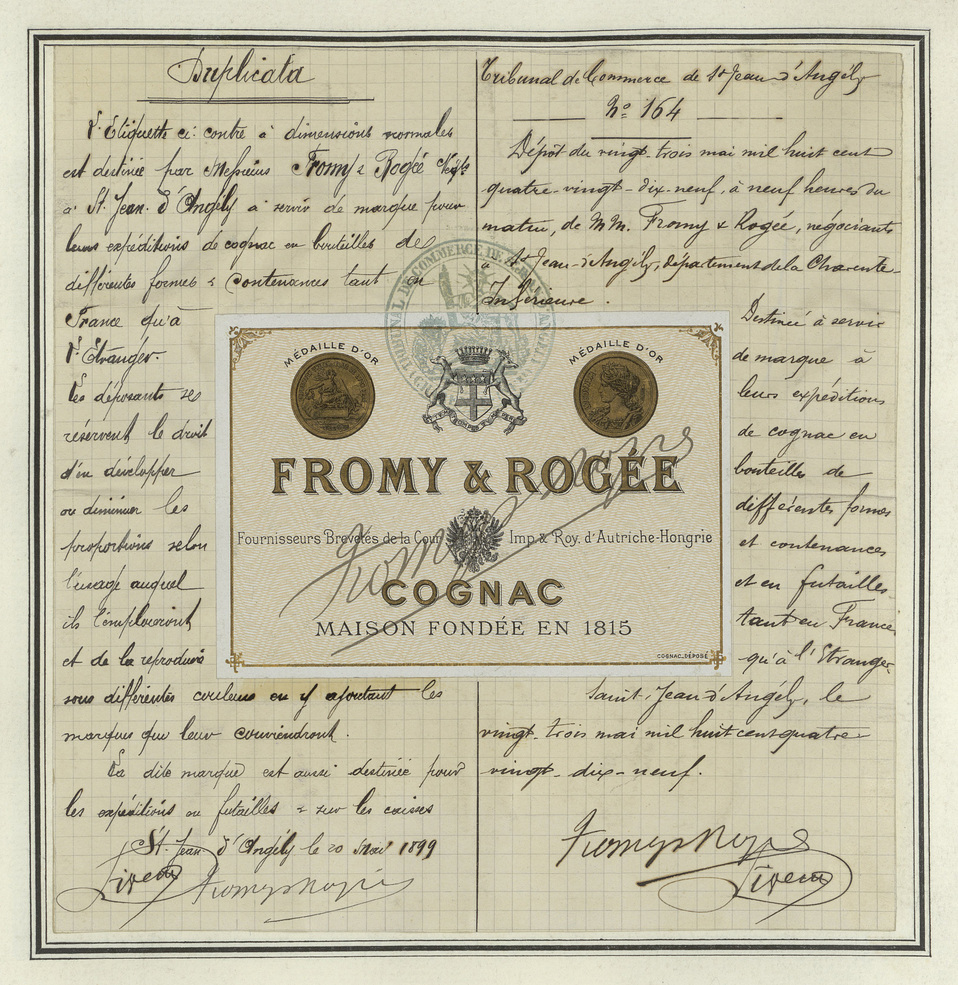 Duplicata
L'Etiquette ci contre à dimensions normales
est destinée par Messieurs Fromy & Rogée Négts
à St Jean d'Angély à servir de marque pour
leurs expéditions de cognac en bouteilles de
différentes formes & contenances tant en
France qu'à
l'Etranger.
Les déposants se
réservent le droit
d'en développer
ou diminuer les
proportions selon
l'usage auquel
ils l'emploieront
et de la reproduire
sous différentes couleurs en y ajoutant les
marques qui leur conviendront.
La dite marque est aussi destinée pour
les expéditions en futailles & sur les caisses
St Jean d'Angély le 20 Mai 1899
Fromy Rogée
Tribunal de Commerce de St Jean d'Angély
No 164
Dépôt du vingt-trois mai mil huit cent
quatre-vingt-dix-neuf, à neuf heures du
matin, de MM. Fromy & Rogée, négociants
à St Jean-d'Angély, département de la Charente-
Inférieure.
Destinée à servir
de marque à
leurs expéditions
de cognac en
bouteilles de
différentes formes
et contenances
et en futailles
tant en France
qu'à l'Etranger
Saint-Jean d'Angély, le
vingt-trois mai mil huit cent quatre-
vingt-dix-neuf.
Fromy Rogée
MÉDAILLE D'OR
MÉDAILLE D'OR
FROMY & ROGÉE
Fournisseurs Brevetés de la Cour Imp. & Roy. d'Autriche-Hongrie
COGNAC
MAISON FONDÉE EN 1815
COGNAC_DÉPOSÉ
Fromy Rogée